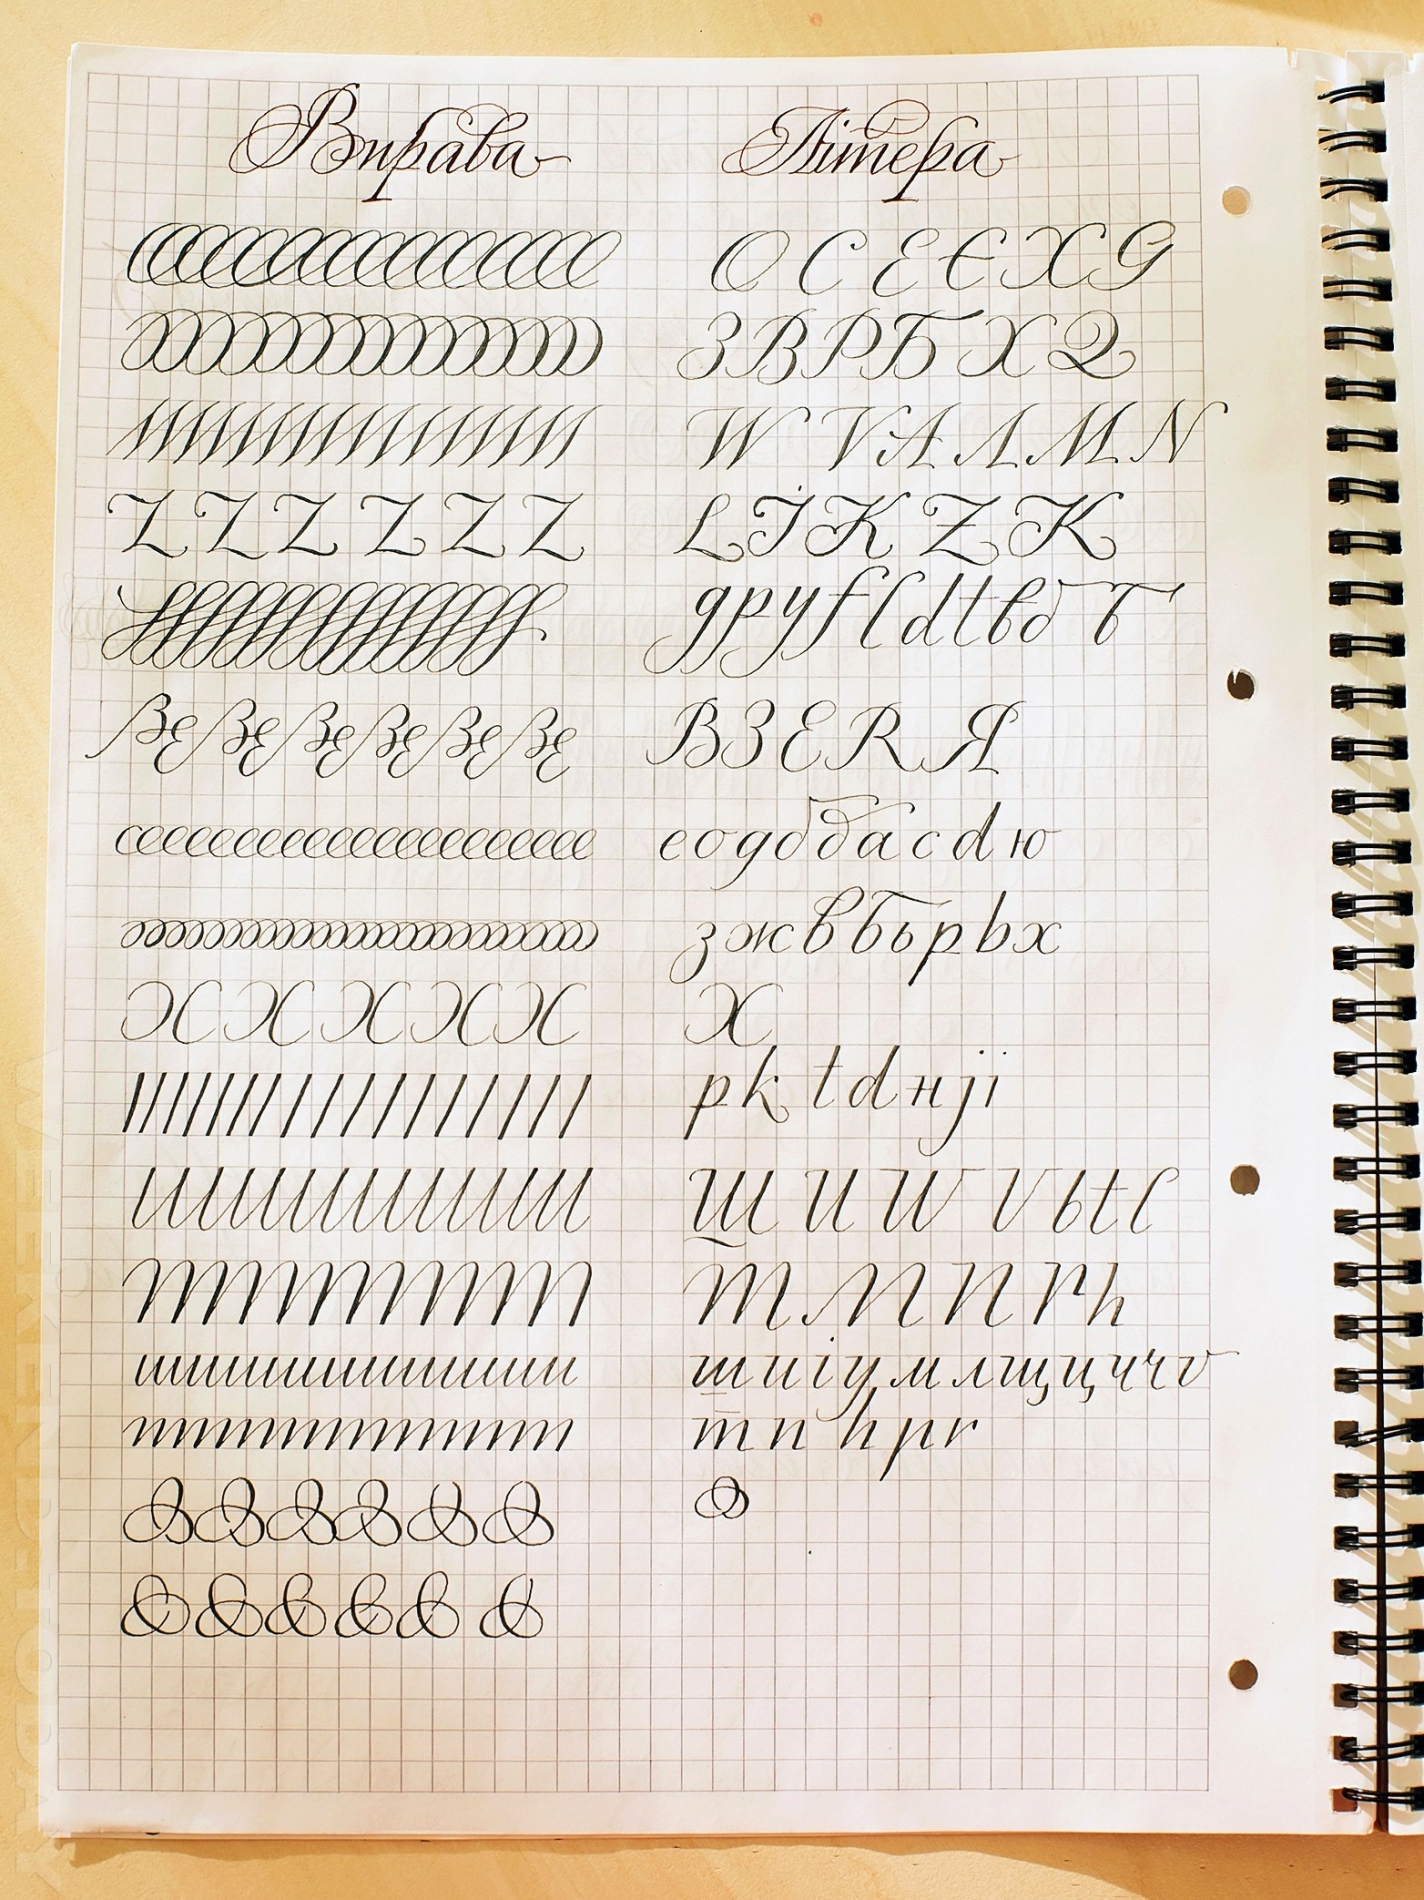 Вправа Літера
O C E Є X G
З В Р Б X Q
W V A Л M N
Z Z Z Z Z Z L İ K Z K
g p y f l d t в д б
В З E R Я
e o g д б д a c d ю
з ж в б ь p b x
X X X X X X
p k t d н j i
Ш U W V b t l
M M N Г h
ш и і у м л щ ц ч ч v
m n h p r